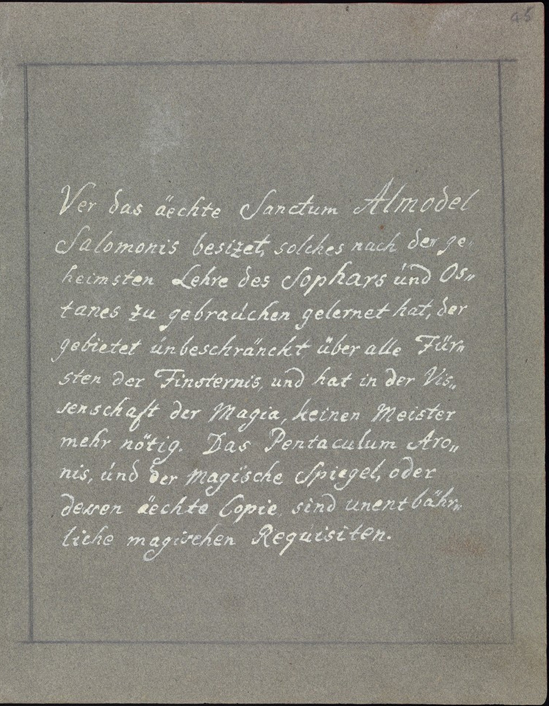 45
Ver das äechte Sanctum Almodel
Salomonis besizet, solches nach der ge-
heimsten Lehre des Sophars und Os„
tanes zu gebrauchen gelernet hat, der
gebietet unbeschränckt über alle Für„
sten der Finsternis, und hat in der Vis„
senschaft der Magia, keinen Meister
mehr nötig. Das Pentaculum Aro„
nis, und der magische Spiegel, oder
dessen äechte Copie sind unentbähr„
liche magischen Requisiten.